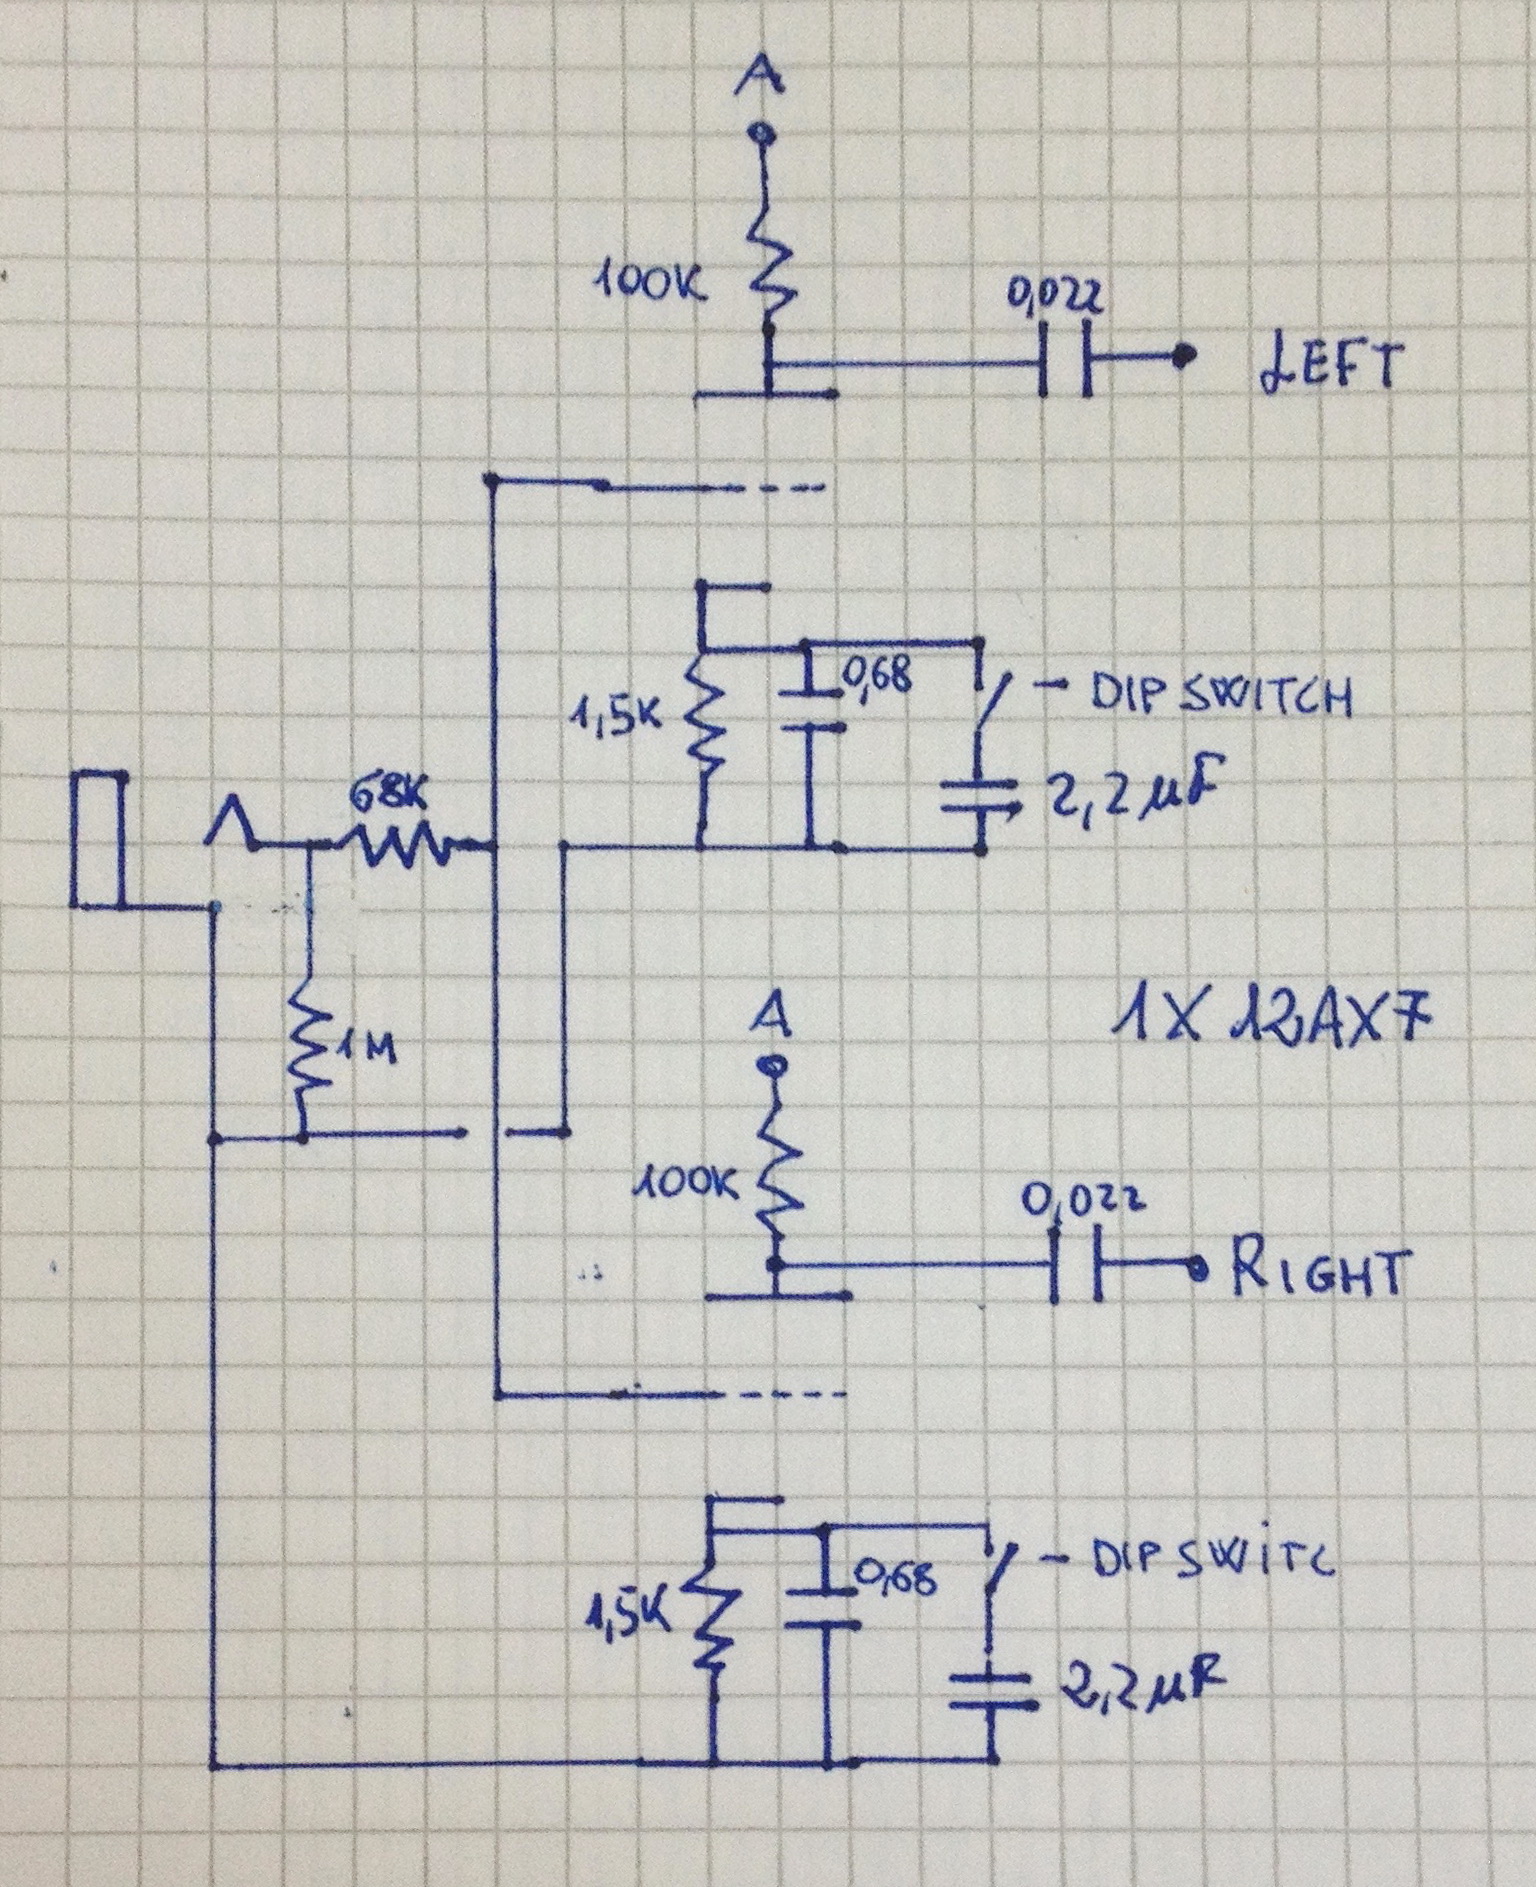 A
100K
0,022
LEFT
0,68
1,5K
DIP SWITCH
68K
2,2 µF
A
1X 12AX7
1M
100K
0,022
RIGHT
DIP SWiTC
0,68
1,5K
2,2 µF